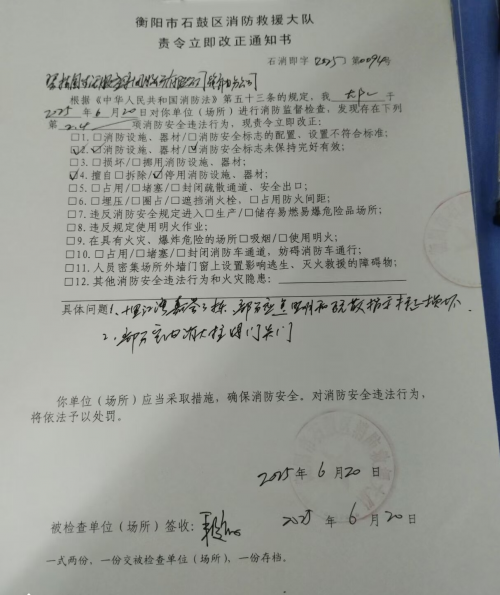 衡阳市石鼓区消防救援大队
责令立即改正通知书
石消即字〔2025〕第0094号
根据《中华人民共和国消防法》第五十三条的规定，我 大队 于
2025年6月20日对你单位（场所）进行消防监督检查，发现存在下列
第2.4项消防安全违法行为，现责令立即改正：
□1.□消防设施、器材/□消防安全标志的配置、设置不符合标准；
☑2.☑消防设施、器材/☑消防安全标志未保持完好有效；
□3.□损坏/□挪用消防设施、器材；
☑4.擅自□拆除/☑停用消防设施、器材；
□5.□占用/□堵塞/□封闭疏散通道、安全出口；
□6.□埋压/□圈占/□遮挡消火栓、□占用防火间距；
□7.违反消防安全规定进入□生产/□储存易燃易爆危险品场所；
□8.违反规定使用明火作业；
□9.在具有火灾、爆炸危险的场所□吸烟/□使用明火；
□10.□占用/□堵塞/□封闭消防车通道，妨碍消防车通行；
□11.人员密集场所外墙门窗上设置影响逃生、灭火救援的障碍物；
□12.其他消防安全违法行为和火灾隐患：
具体问题1、部分应急照明和疏散指示标志损坏.
2、部分室内消火栓阀门关门
你单位（场所）应当采取措施，确保消防安全。对消防安全违法行为，
将依法予以处罚。
2025年6月20日
被检查单位（场所）签收： 2025年6月20日
一式两份，一份交被检查单位（场所），一份存档。